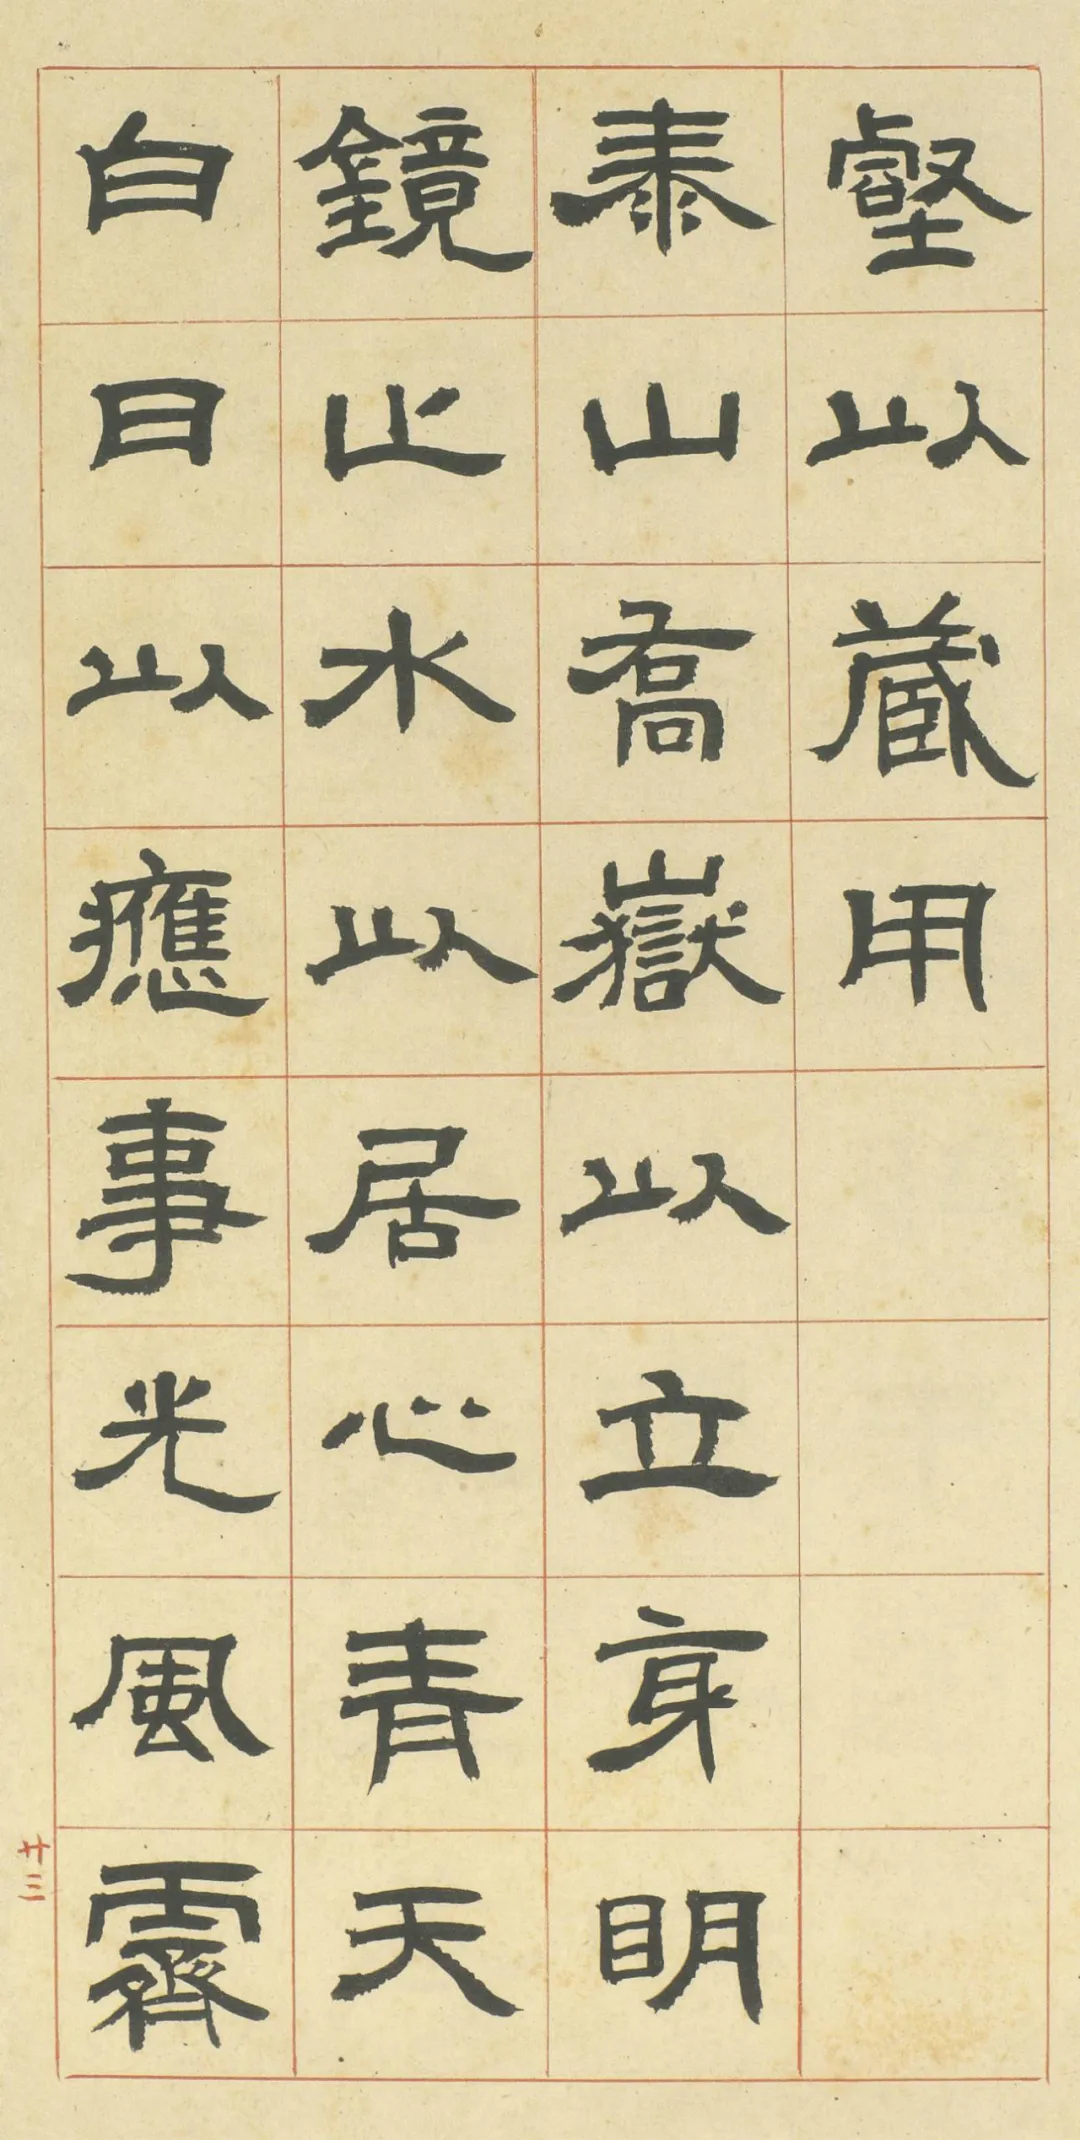 壑以藏用
泰山喬嶽以立身明
鏡止水以居心青天
白日以應事光風霽
廿三